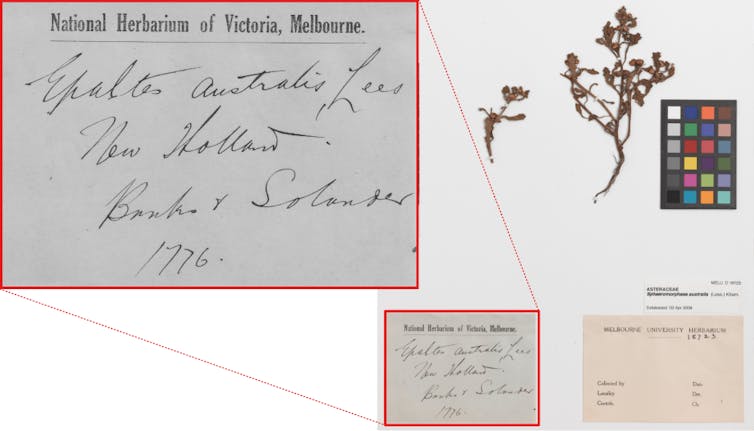 National Herbarium of Victoria, Melbourne.
Epaltes australis, Less
New Holland.
Banks & Solander
1776.
National Herbarium of Victoria, Melbourne.
Epaltes australis, Less
New Holland.
Banks & Solander
1776.
ASTERACEAE
Sphaeromorphaea australis (Less.) Kitam.
MELBOURNE UNIVERSITY HERBARIUM
Collected by
Date
Locality
Det.
Contrib.